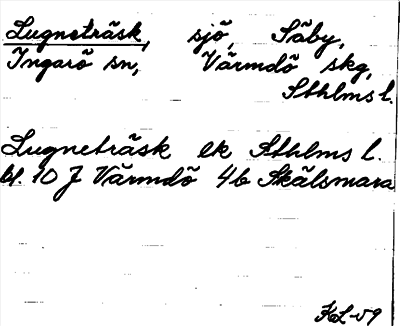 Lugneträsk, sjö, Säby,
Ingarö sn, Värmdö skg,
Sthlms l.
Lugneträsk ek Sthlms l.
bl. 10 J Värmdö 4b Skälsmara